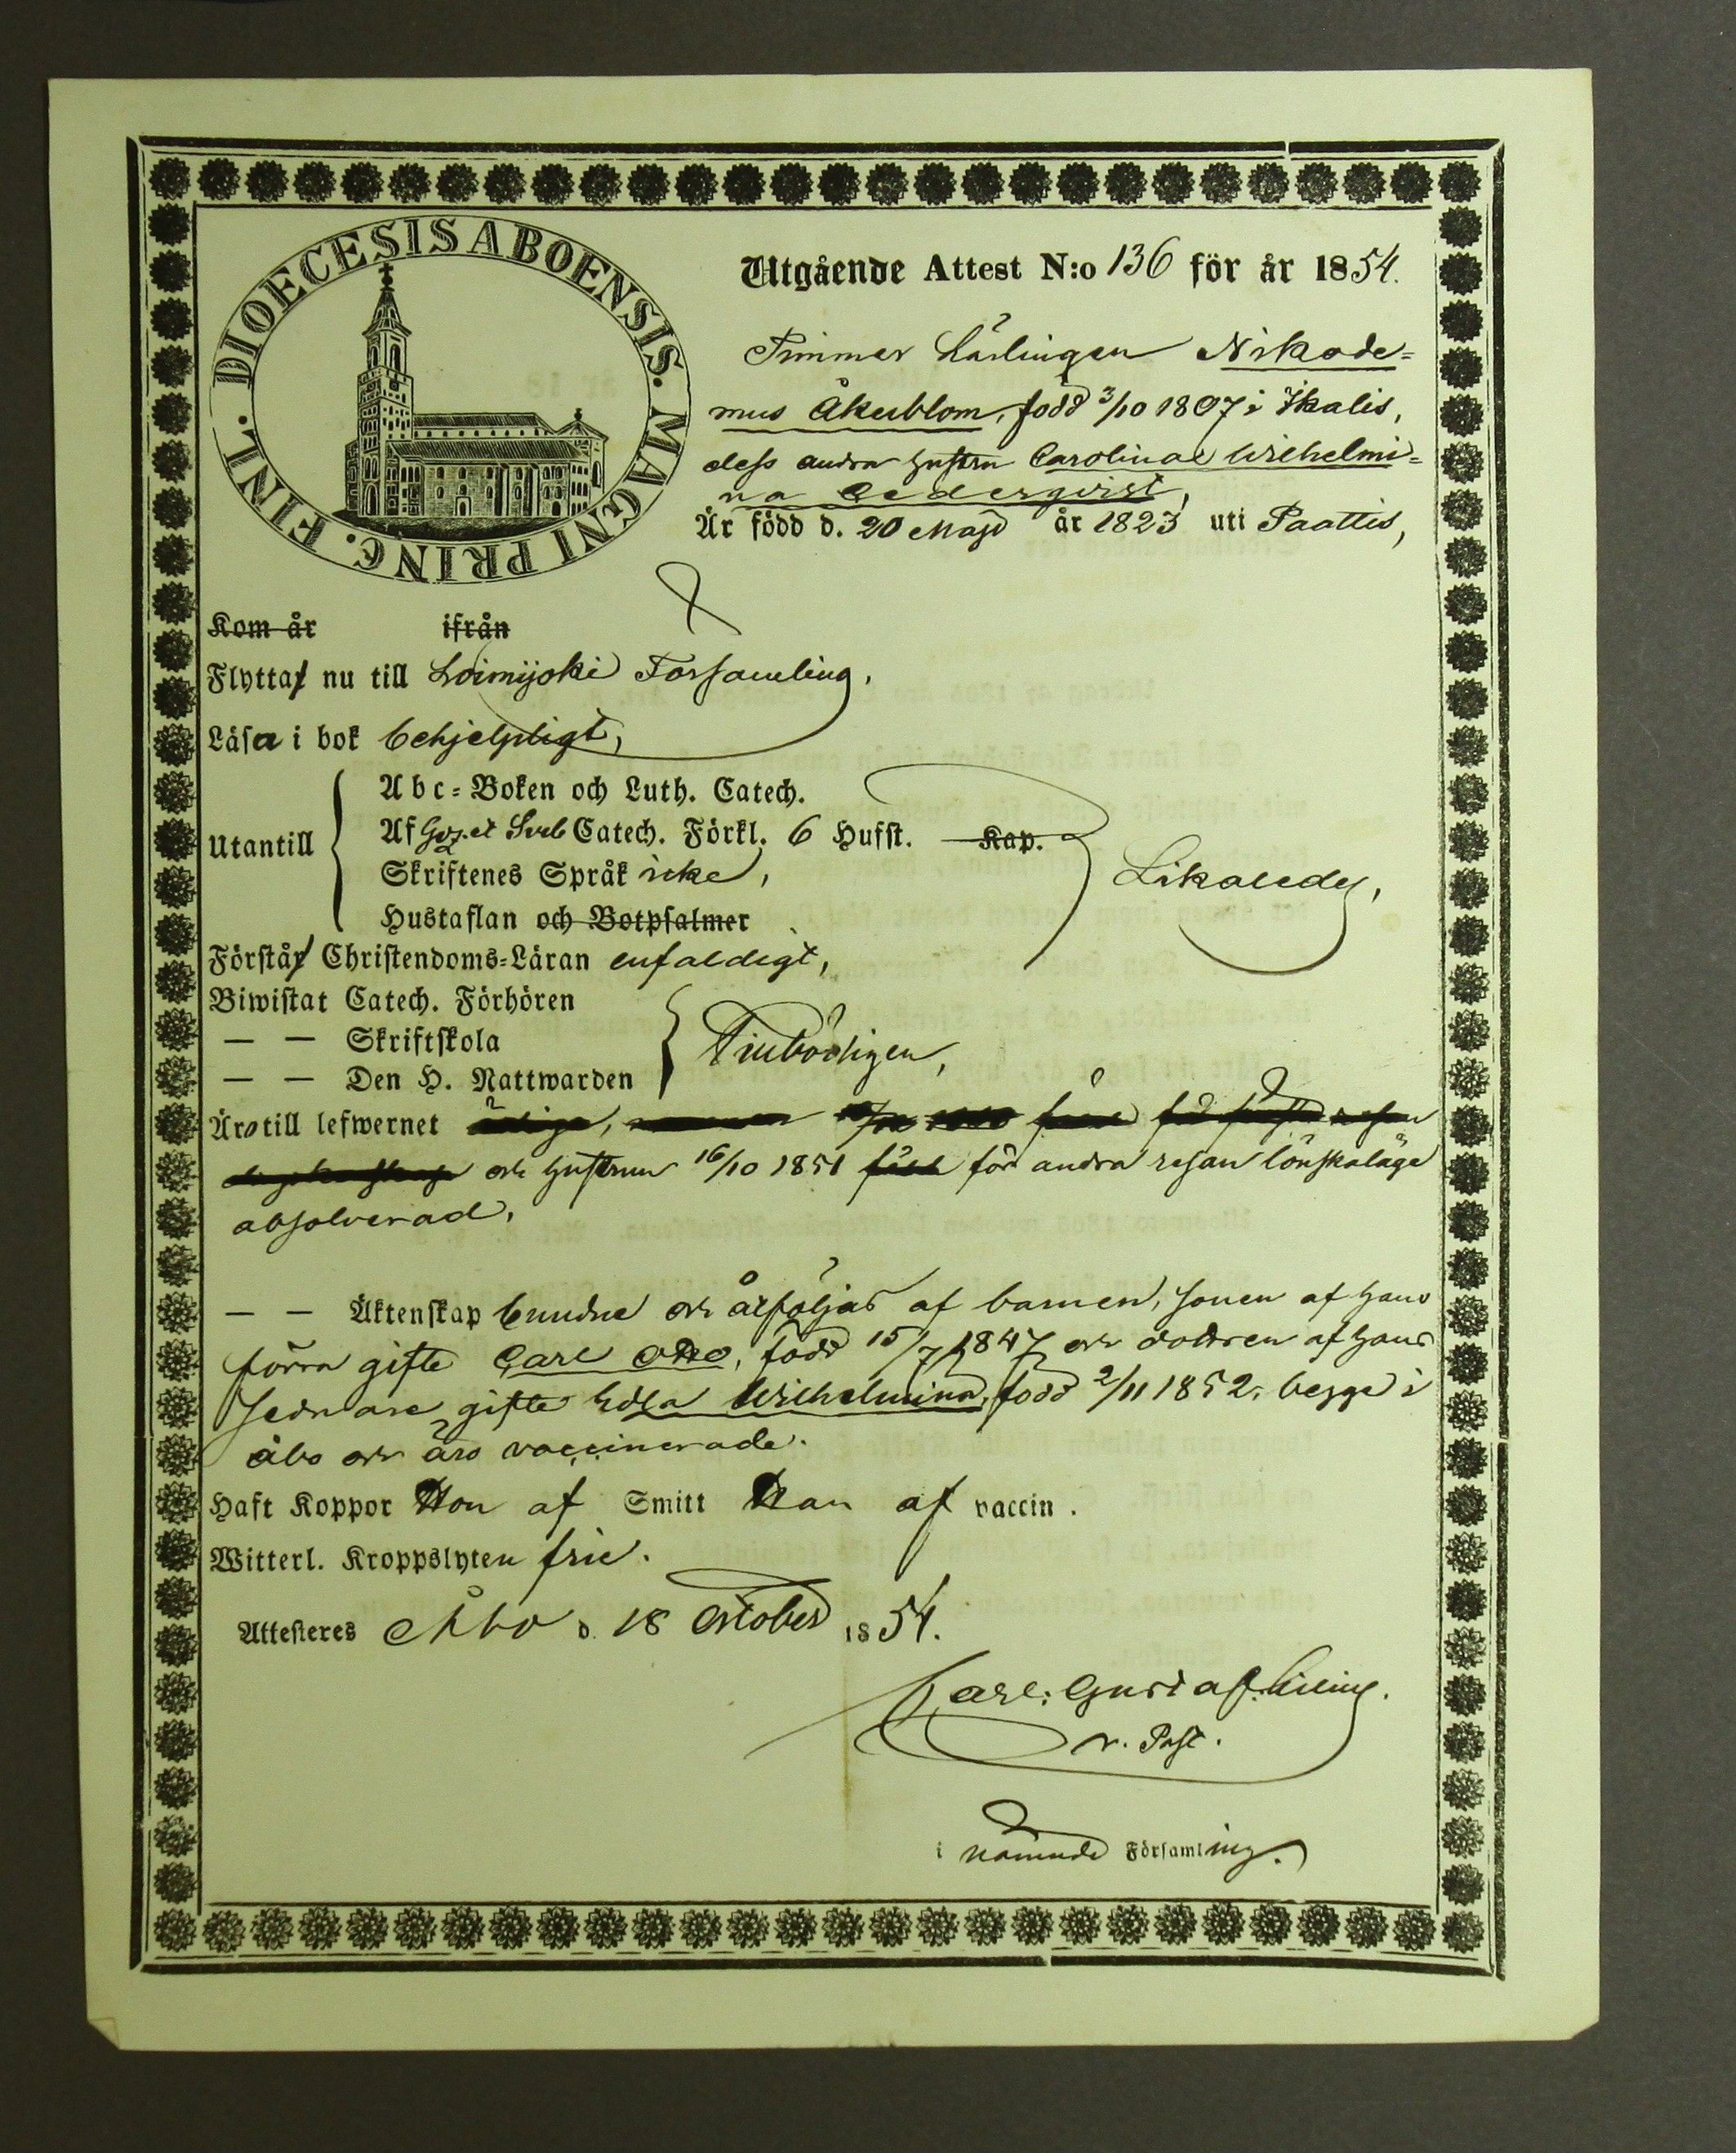 DIOECESIS ABOENSIS. MAGNI PRINC. FINL.
Utgående Attest N:o 136 för år 1854.
Timmer Lärlingen Nikode=
mus Åkerblom, född 3/10 1807 i Ikalis,
dess andra hustru Carolina Wilhelmi=
na Cederqvist,
Är född d. 20 Maji år 1823 uti Paattis,
Kom år ifrån
Flyttar nu till Loimijoki Församling,
Läsa i bok behjelpligt,
Utantill
Abc=Boken och Luth. Catech.
Af Catech. Förkl. 6 Hufst. Kap.
Skriftenes Språk icke,
Hustaflan och Botpsalmer
Likaledes,
Förstår Christendoms=Läran enfaldigt,
Biwistat Catech. Förhören
— — Skriftskola
— — Den H. Nattwarden
Tillbörligen,
Äro till lefwernet
och hustrun 16/10 1851 för andra resan lönskaläge
absolverad.
— — Äktenskap bundne och åtföljas af barnen, sonen af hans
förra gifte Carl Otto, född 15/7 1847 och dottren af hans
sednare gifte Edla Wilhelmina, född 2/11 1852, begge i
Åbo och äro vaccinerade.
Haft Koppor Hon af Smitt Han af vaccin.
Witterl. Kroppslyten frie.
Attesteres Åbo d. 18 October 1854.
Carl Gustaf
v. Past.
i nämnde Församling.